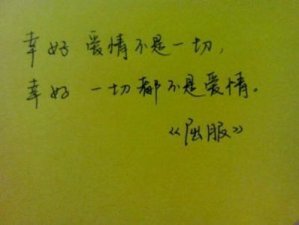 幸好 爱情不是一切,
幸好 一切都不是爱情。
《屈服》